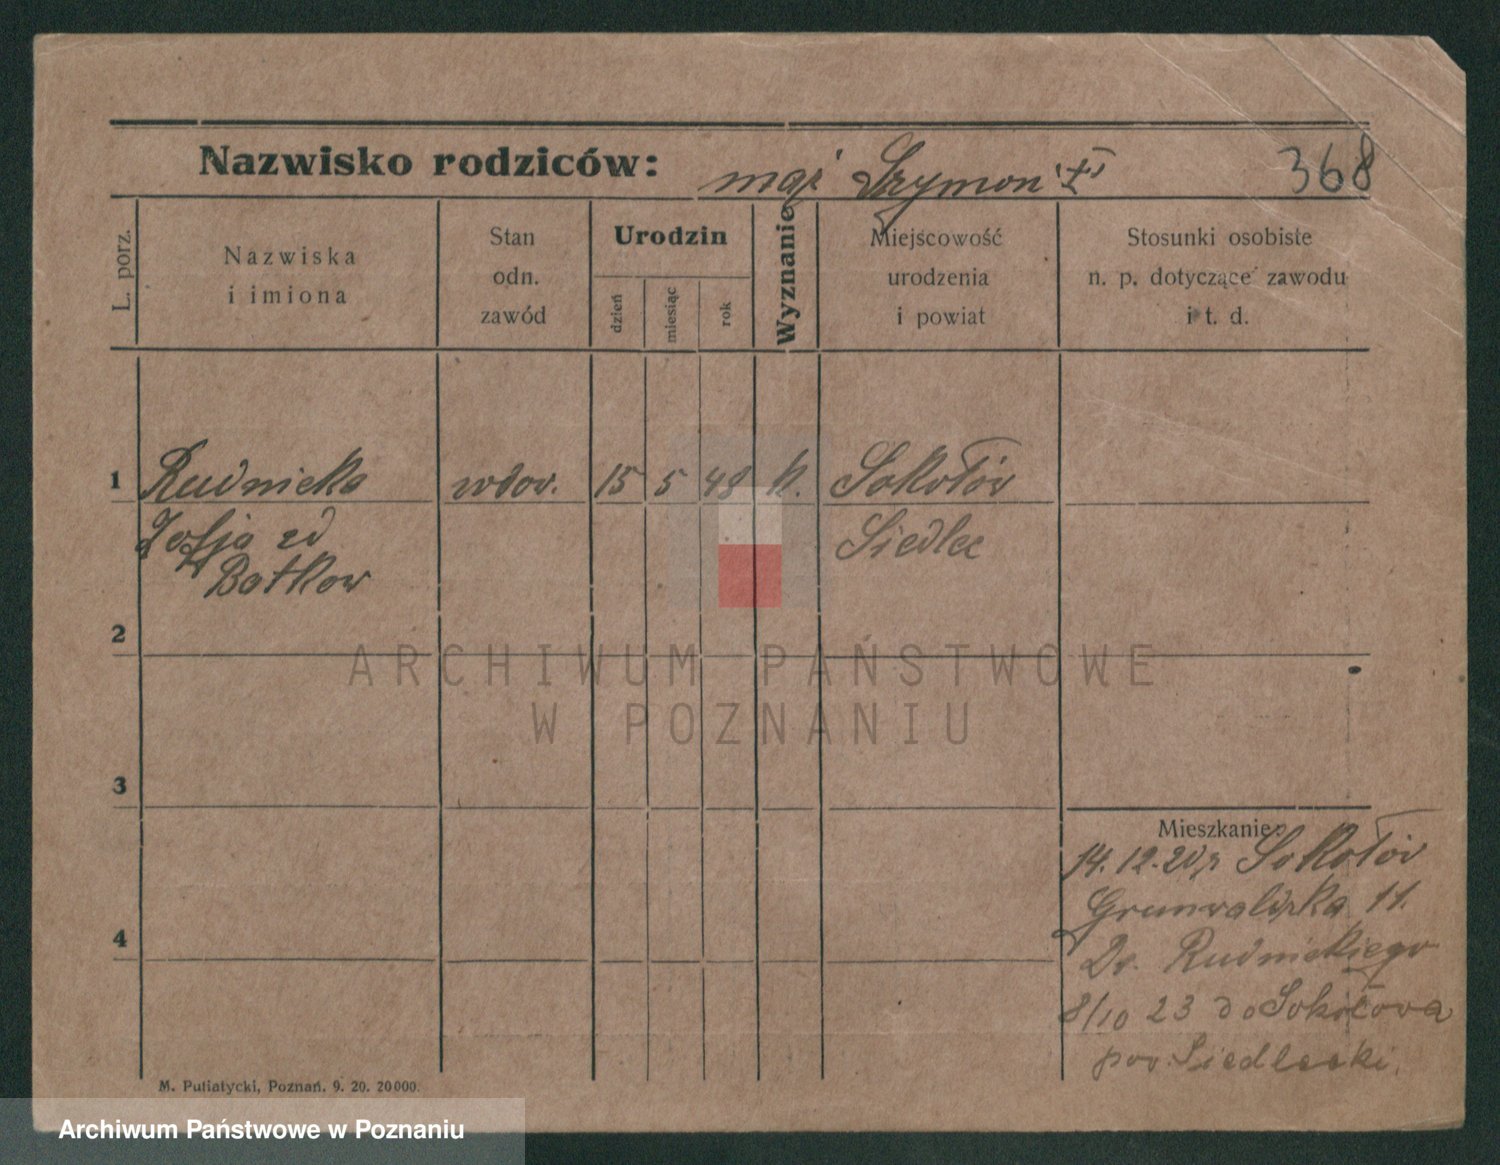 Nazwisko rodziców: mąż Szymon
368
L. porz.
Nazwiska
i imiona
Stan
odn.
zawód
Urodzin
dzień
miesiąc
rok
Wyznanie
Miejscowość
urodzenia
i powiat
Stosunki osobiste
n. p. dotyczące zawodu
i t. d.
1 Rudnicka wdow. 15 5 48 k. Sokołów
Zofja zd Siedlec
Botkow
2
3
4
Mieszkanie:
14.12.20 z Sokołów
Grunwaldzka 11.
Dr. Rudnickiego
8/10 23 do Sokołowa
pow. Siedlecki.
M. Putiatycki, Poznań. 9. 20. 20000.
ARCHIWUM PAŃSTWOWE
W POZNANIU
Archiwum Państwowe w Poznaniu